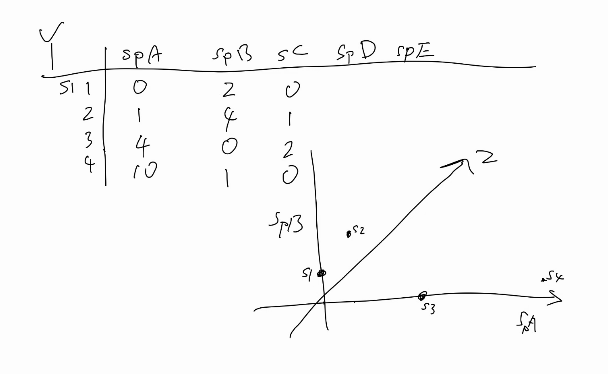 Y
spA spB sC spD spE
S1 1 0 2 0
2 1 4 1
3 4 0 2
4 10 1 0
2
spB
s2
s1
s4
s3
spA